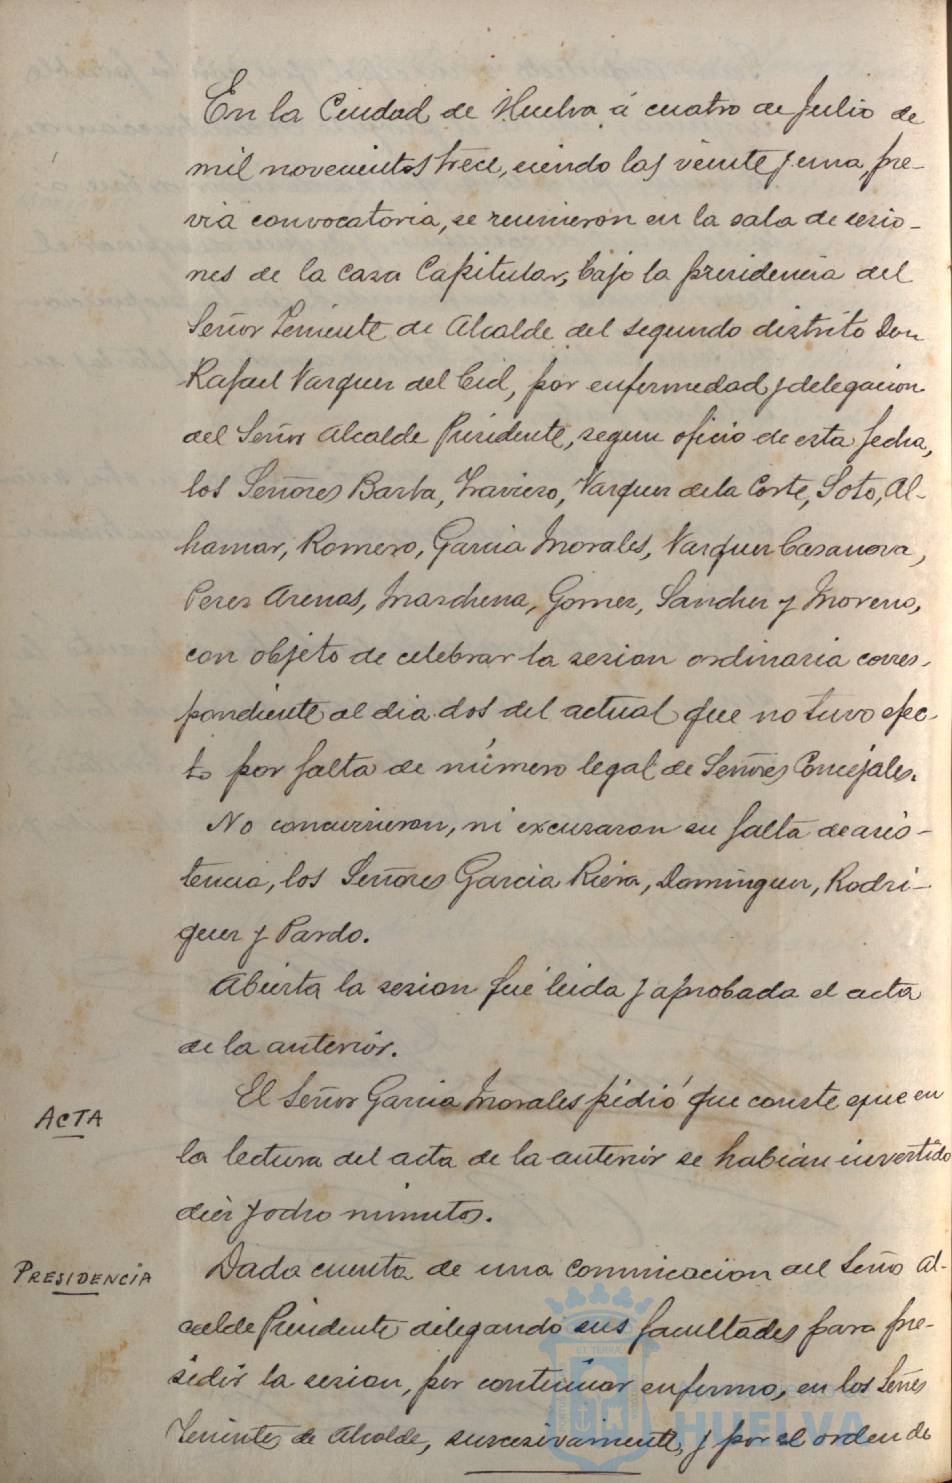 En la Ciudad de Huelva á cuatro de Julio de
mil novecientos trece, siendo las veinte y una, pre-
via convocatoria, se reunieron en la sala de sesio-
nes de la casa Capitular, bajo la presidencia del
Señor Teniente de Alcalde del segundo distrito Don
Rafael Vazquez del Cid, por enfermedad y delegacion
del Señor Alcalde Presidente, segun oficio de esta fecha,
los Señores Barba, Traviezo, Vazquez de la Corte, Soto, Al-
hamar, Romero, Garcia Morales, Vazquez Casanova,
Perez Arenas, Marchena, Gomez, Sanchez y Moreno,
con objeto de celebrar la sesion ordinaria corres-
pondiente al dia dos del actual que no tuvo efec-
to por falta de número legal de Señores Concejales.
No concurrieron, ni excusaron su falta de asis-
tencia, los Señores Garcia Riera, Dominguez, Rodri-
guez y Pardo.
Abierta la sesion fué leida y aprobada el acta
de la anterior.
ACTA
El Señor Garcia Morales pidió que conste que en
la lectura del acta de la anterior se habian invertido
diez y ocho minutos.
PRESIDENCIA
Dada cuenta de una comunicacion del Señor Al-
calde Presidente delegando sus facultades para pre-
sidir la sesion, por continuar enfermo, en los Señores
Tenientes de Alcalde, sucesivamente, y por el orden de
HUELVA